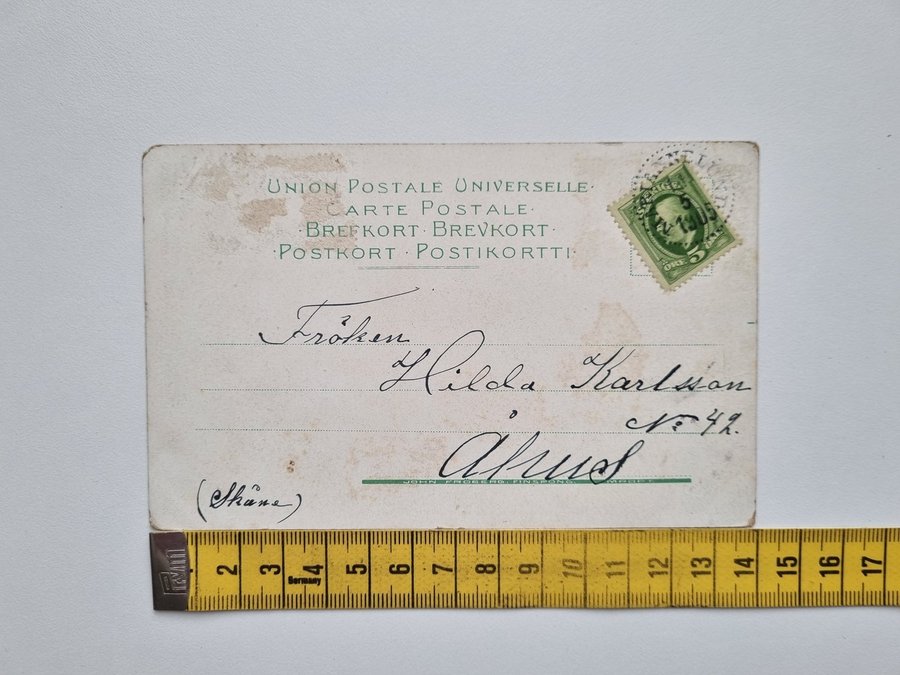 UNION POSTALE UNIVERSELLE·
CARTE POSTALE·
·BREFKORT·BREVKORT·
·POSTKORT·POSTIKORTTI·
5
ÖRE 5
Fröken
Hilda Karlsson
No 42.
Åhus
JOHN FRÖBERG, FINSPONG
(Skåne)
2 3 4 5 6 7 8 9 10 11 12 13 14 15 16 17
Germany